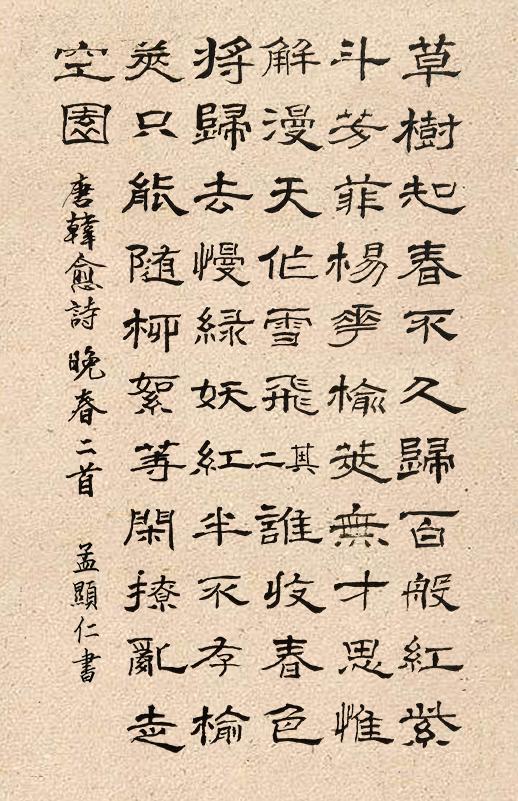 草樹知春不久歸百般紅紫
斗芳菲楊華榆莢無才思惟
解漫天作雪飛其二誰收春色
將歸去慢緑妖紅半不存榆
莢只能随柳絮等閑撩亂走
空園
唐韓愈詩晚春二首 孟顯仁書